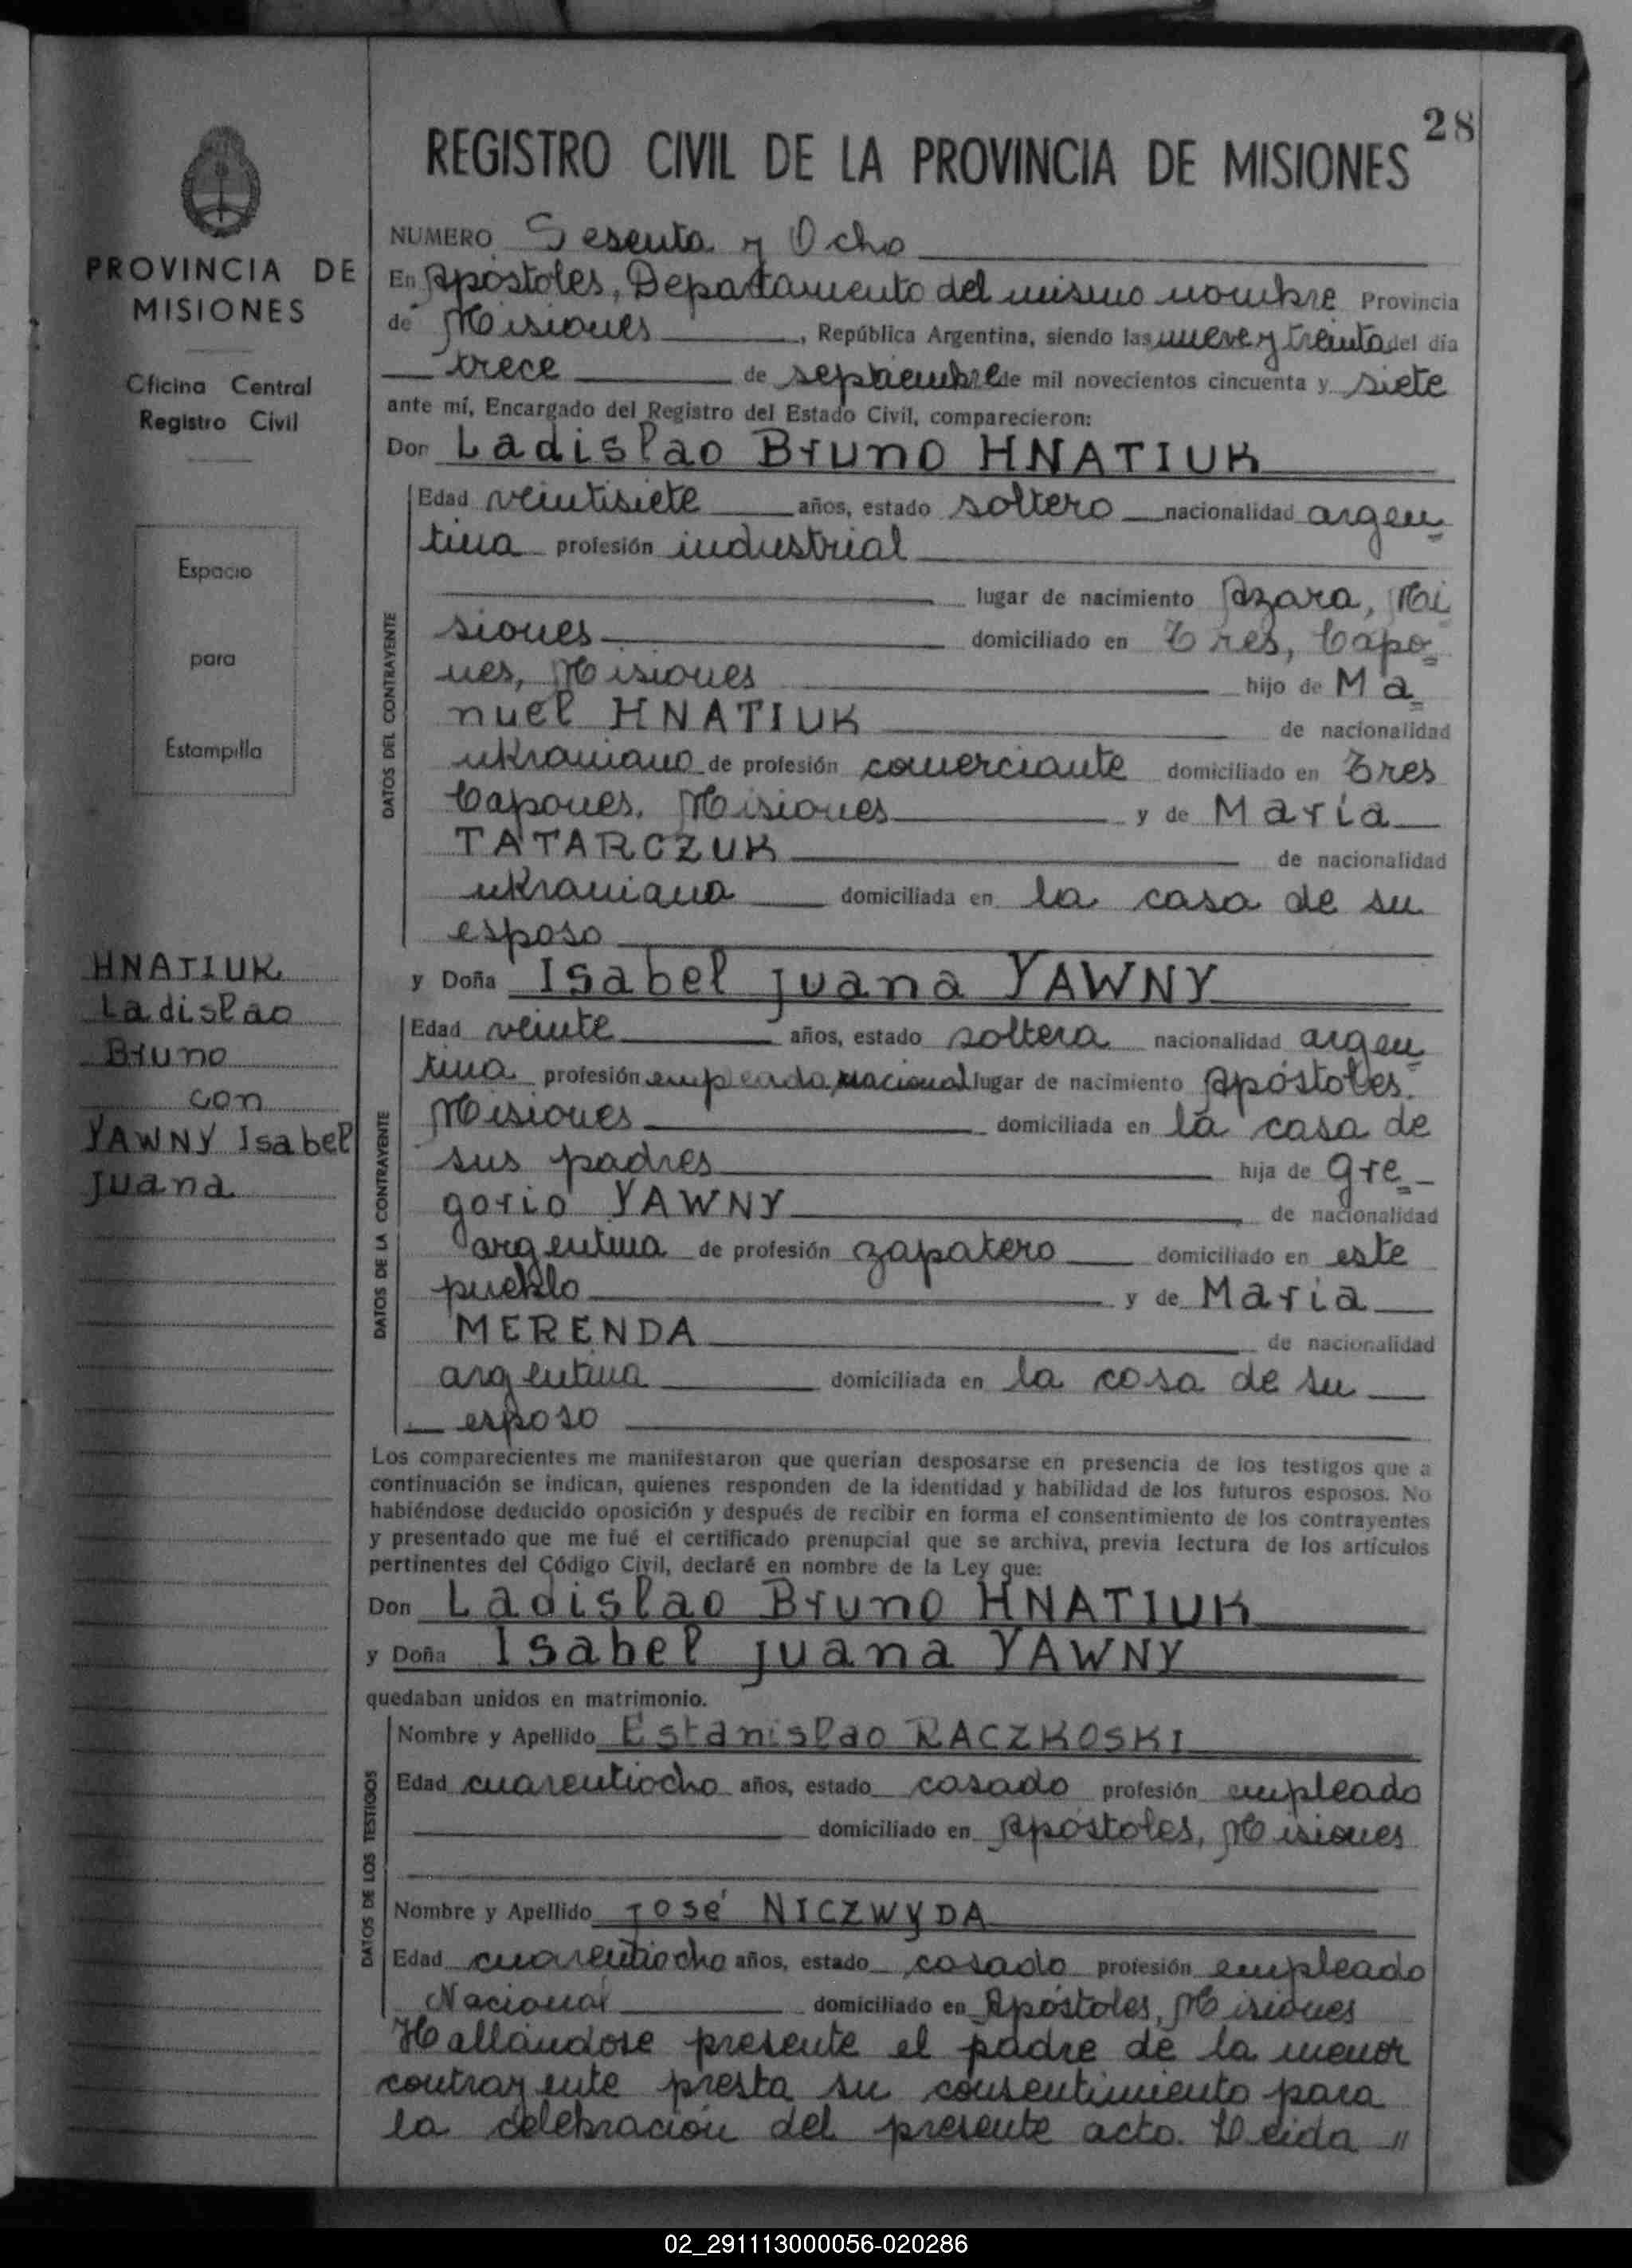 28
REGISTRO CIVIL DE LA PROVINCIA DE MISIONES
PROVINCIA DE
MISIONES
Oficina Central
Registro Civil
Espacio
para
Estampilla
HNATIUK
Ladislao
Bruno
con
YAWNY Isabel
Juana
NUMERO Sesenta y Ocho
En Apóstoles, Departamento del mismo nombre Provincia
de Misiones, República Argentina, siendo las nueve y treinta del día
trece de septiembre de mil novecientos cincuenta y siete
ante mí, Encargado del Registro del Estado Civil, comparecieron:
Don Ladislao Bruno HNATIUK
DATOS DEL CONTRAYENTE
Edad veintisiete años, estado soltero nacionalidad argen=
tina profesión industrial
lugar de nacimiento Azara, Mi
siones domiciliado en Tres, Capo=
nes, Misiones hijo de Ma=
nuel HNATIUK de nacionalidad
ukraniano de profesión comerciante domiciliado en Tres
Capones, Misiones y de María
TATARCZUK de nacionalidad
ukraniana domiciliada en la casa de su
esposo
y Doña Isabel Juana YAWNY
DATOS DE LA CONTRAYENTE
Edad veinte años, estado soltera nacionalidad argen=
tina profesión empleada nacional lugar de nacimiento Apóstoles.
Misiones domiciliada en la casa de
sus padres hija de Gre=
gorio YAWNY de nacionalidad
argentina de profesión zapatero domiciliado en este
pueblo y de María
MERENDA de nacionalidad
argentina domiciliada en la casa de su
esposo
Los comparecientes me manifestaron que querían desposarse en presencia de los testigos que a
continuación se indican, quienes responden de la identidad y habilidad de los futuros esposos. No
habiéndose deducido oposición y después de recibir en forma el consentimiento de los contrayentes
y presentado que me fué el certificado prenupcial que se archiva, previa lectura de los artículos
pertinentes del Código Civil, declaré en nombre de la Ley que:
Don Ladislao Bruno HNATIUK
y Doña Isabel Juana YAWNY
quedaban unidos en matrimonio.
DATOS DE LOS TESTIGOS
Nombre y Apellido Estanislao RACZKOSKI
Edad cuarentiocho años, estado casado profesión empleado
domiciliado en Apóstoles, Misiones
Nombre y Apellido José NICZWYDA
Edad cuarentiocho años, estado casado profesión empleado
Nacional domiciliado en Apóstoles, Misiones
Hallándose presente el padre de la menor
contrayente presta su consentimiento para
la celebración del presente acto. Leida "
02_291113000056-020286